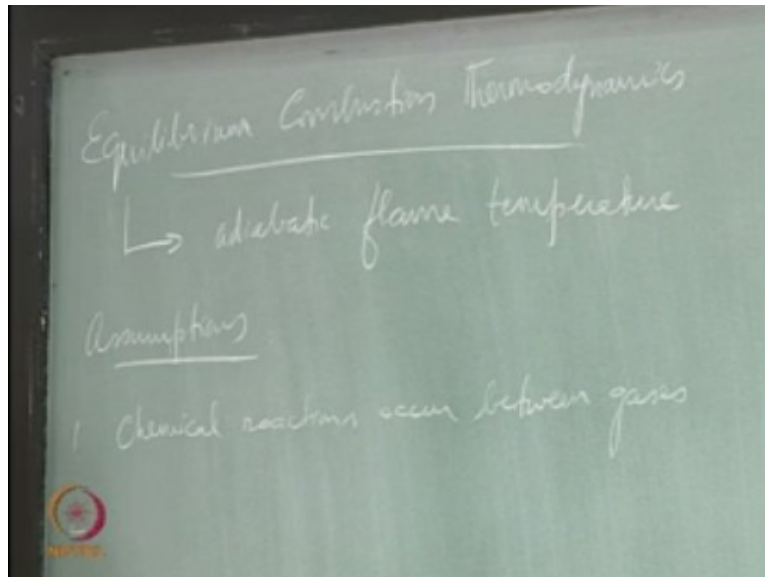 Equilibrium Combustion Thermodynamics
↳ adiabatic flame temperature
Assumptions
1 Chemical reactions occur between gases
NPTEL